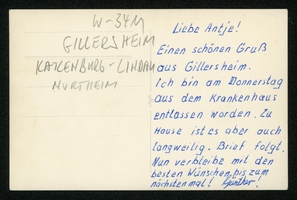 W-3411
GILLERSHEIM
KATLENBURG-LINDAU
NORTHEIM
Liebe Antje!
Einen schönen Gruß
aus Gillersheim.
Ich bin am Donnerstag
aus dem Krankenhaus
entlassen worden. Zu
Hause ist es aber auch
langweilig. Brief folgt.
Nun verbleibe mit den
besten Wünschen, bis zum
nächsten mal! Günther!